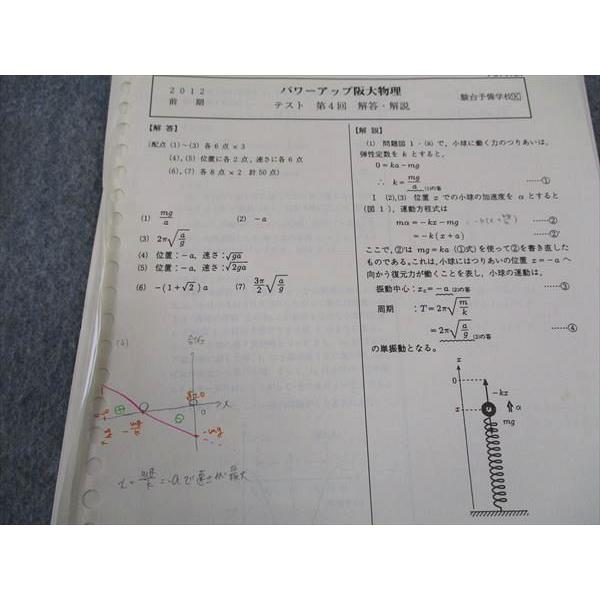 2012
前 期
パワーアップ阪大物理
テスト 第4回 解答・解説
駿台予備学校K
【解 答】
(配点 (1)~(3) 各6点×3
(4),(5) 位置に各2点, 速さに各6点
(6),(7) 各8点×2 計50点)
(1) mg/a (2) -a
(3) 2π√(a/g)
(4) 位置:-a, 速さ:√ga
(5) 位置:-a, 速さ:√2ga
(6) -(1+√2)a (7) 3π/2 √(a/g)
(4)
x
0
-mg
【解 説】
(1) 問題図1・(a)で, 小球に働く力のつりあいは,
弾性定数を k とすると,
0=ka-mg
∴ k=mg/a (1)の答 ……①
I (2),(3) 位置 z での小球の加速度を α とすると
(図1), 運動方程式は
mα=-kz-mg ……②
=-k(z+a) ……②'
ここで, ②'は mg=ka (①式)を使って②を書き直した
ものである。これは, 小球にはつりあいの位置 z=-a へ
向かう復元力が働くことを表し, 小球の運動は,
振動中心:zc=-a (2)の答 ……③
周期 :T=2π√(m/k)
=2π√(a/g) (3)の答 ……④
の単振動となる。
z
0
-kz
α
z
mg